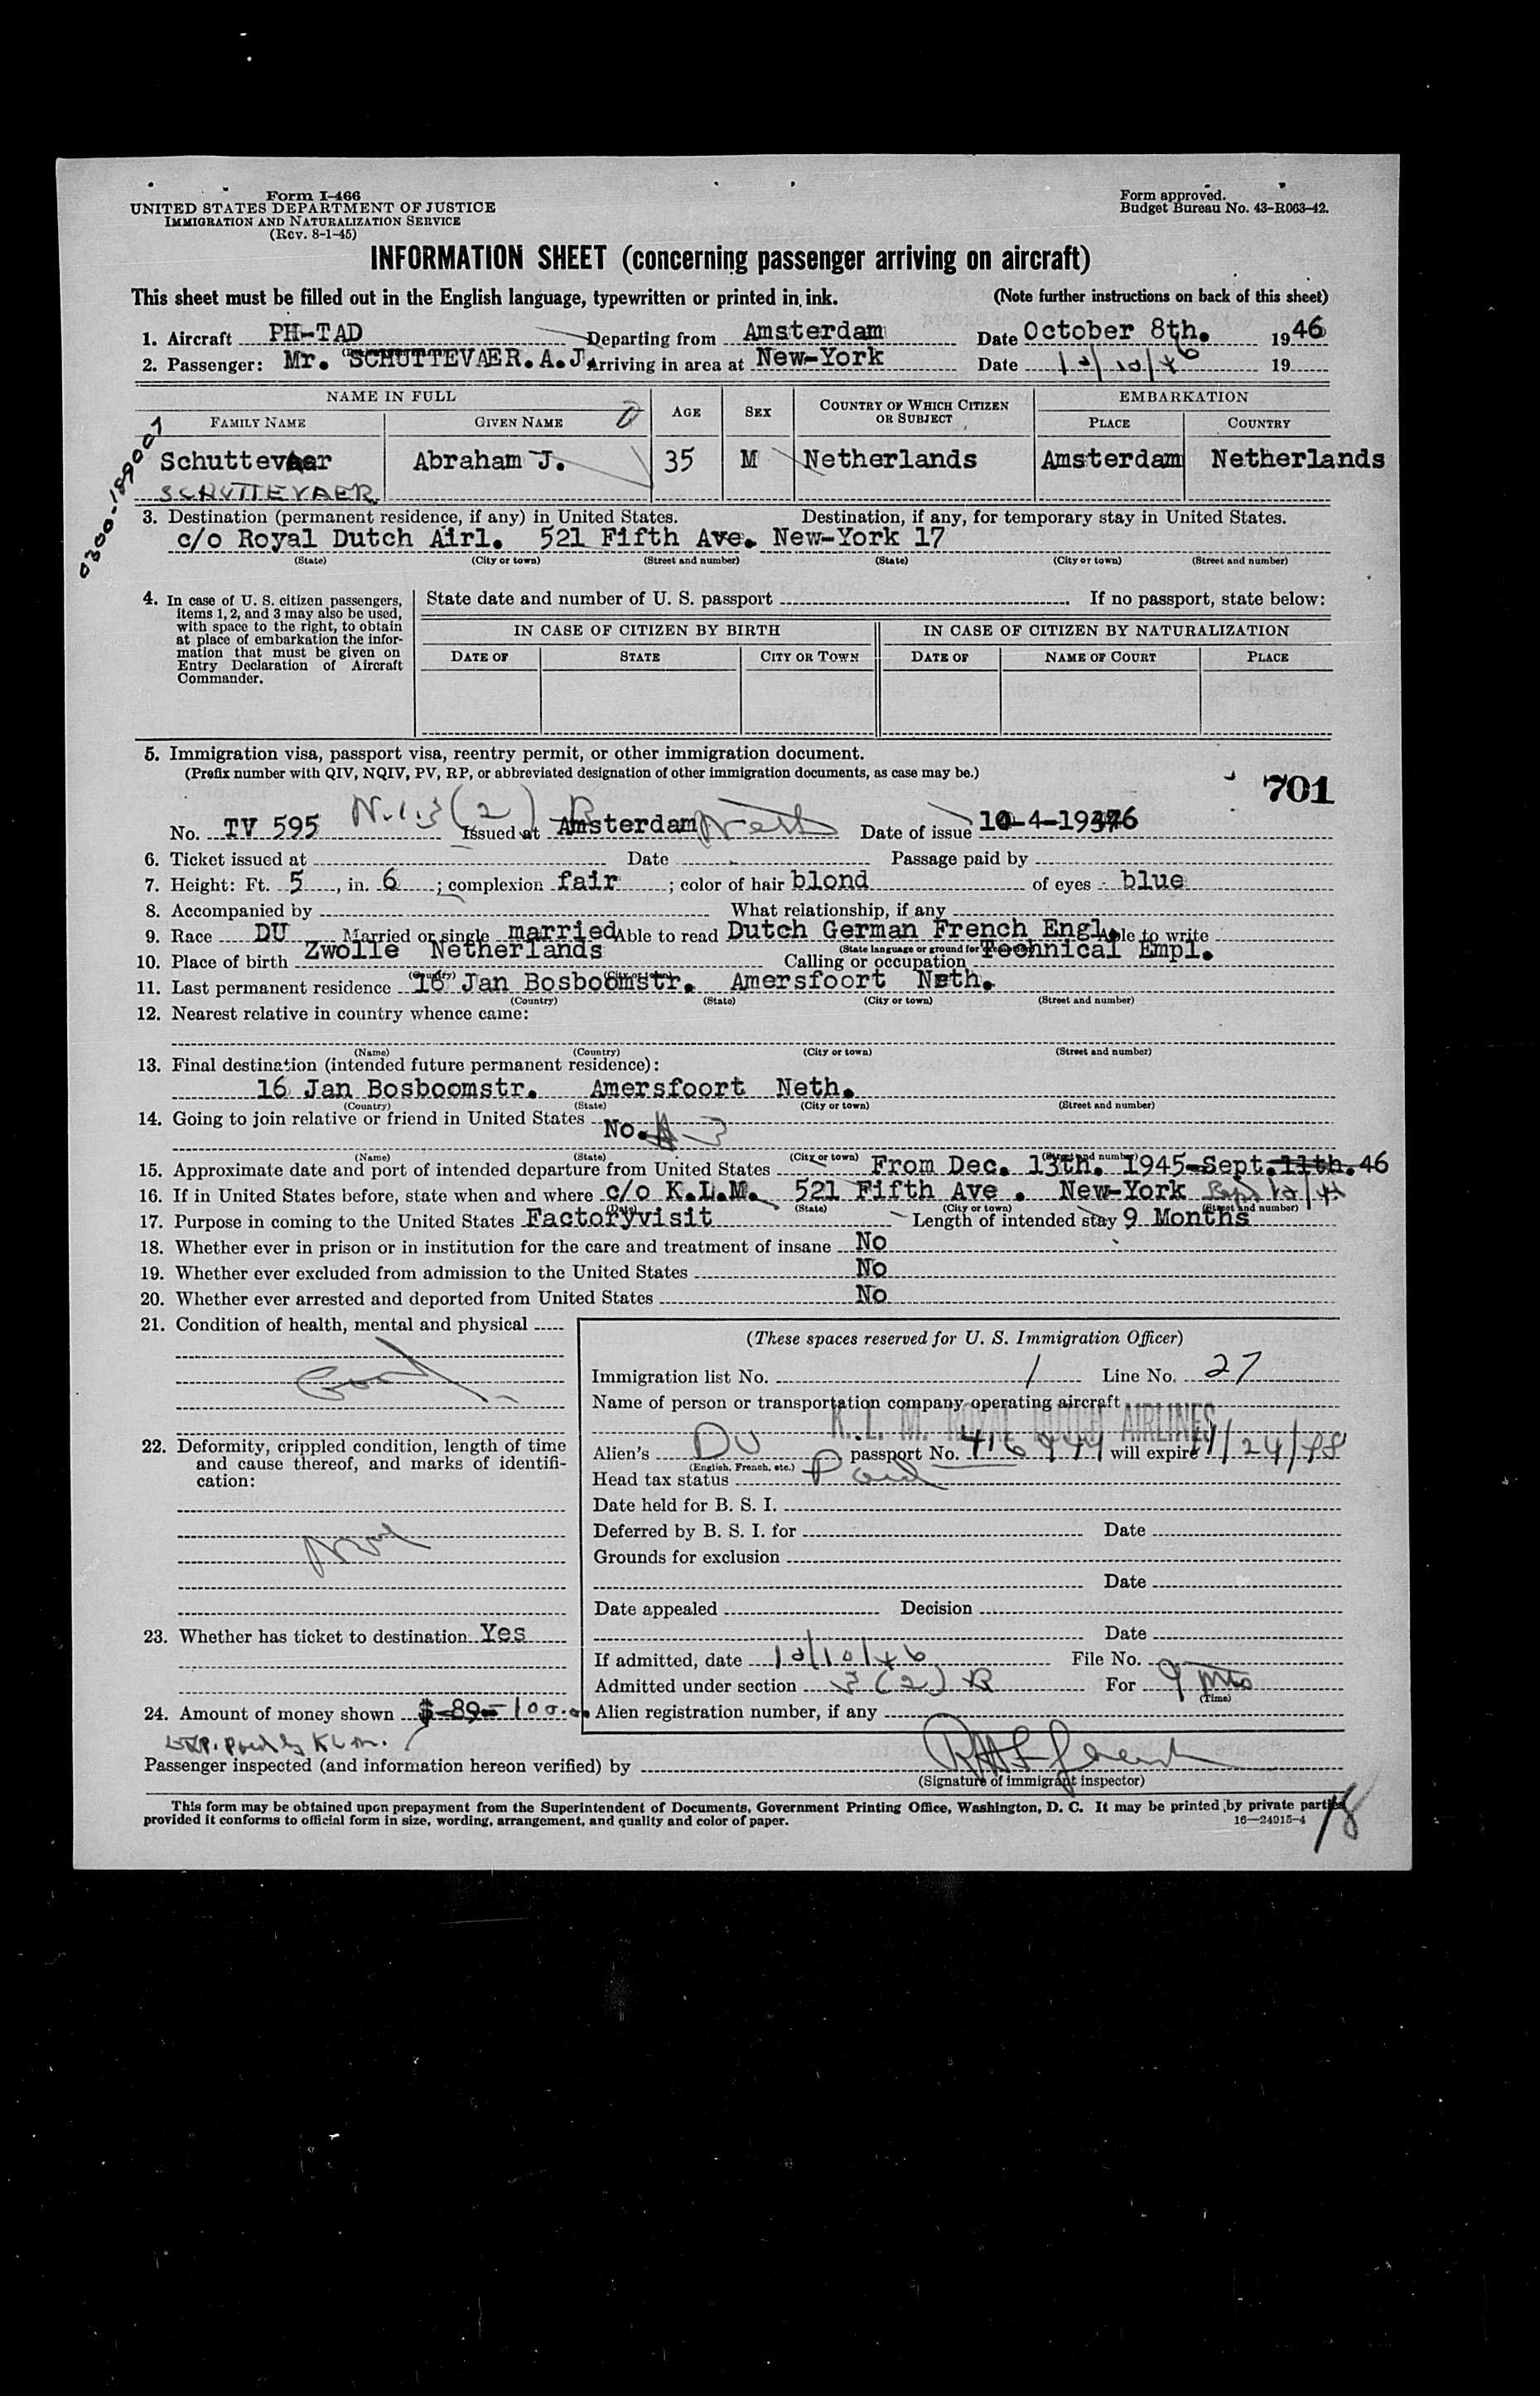 Form I-466
UNITED STATES DEPARTMENT OF JUSTICE
IMMIGRATION AND NATURALIZATION SERVICE
(Rev. 8-1-45)
Form approved.
Budget Bureau No. 43-R063-42.
INFORMATION SHEET (concerning passenger arriving on aircraft)
This sheet must be filled out in the English language, typewritten or printed in ink. (Note further instructions on back of this sheet)
1. Aircraft PH-TAD Departing from Amsterdam Date October 8th. 1946
2. Passenger: Mr. SCHUTTEVAER. A.J. Arriving in area at New-York Date 10/10/46 19
NAME IN FULL AGE SEX COUNTRY OF WHICH CITIZEN OR SUBJECT EMBARKATION
FAMILY NAME GIVEN NAME PLACE COUNTRY
0300-189007
Schuttevaer Abraham J. 35 M Netherlands Amsterdam Netherlands
SCHUTTEVAER
3. Destination (permanent residence, if any) in United States. Destination, if any, for temporary stay in United States.
c/o Royal Dutch Airl. 521 Fifth Ave. New-York 17
(State) (City or town) (Street and number) (State) (City or town) (Street and number)
4. In case of U. S. citizen passengers, items 1, 2, and 3 may also be used, with space to the right, to obtain at place of embarkation the information that must be given on Entry Declaration of Aircraft Commander.
State date and number of U. S. passport If no passport, state below:
IN CASE OF CITIZEN BY BIRTH IN CASE OF CITIZEN BY NATURALIZATION
DATE OF STATE CITY OR TOWN DATE OF NAME OF COURT PLACE
5. Immigration visa, passport visa, reentry permit, or other immigration document.
(Prefix number with QIV, NQIV, PV, RP, or abbreviated designation of other immigration documents, as case may be.)
701
No. TV 595 3(2) Issued at Amsterdam Neth Date of issue 10-4-1946
6. Ticket issued at Date Passage paid by
7. Height: Ft. 5, in. 6; complexion fair; color of hair blond of eyes blue
8. Accompanied by What relationship, if any
9. Race DU Married or single married Able to read Dutch German French Engl. Able to write
10. Place of birth Zwolle Netherlands Calling or occupation Technical Empl.
11. Last permanent residence 16 Jan Bosboomstr. Amersfoort Neth.
(Country) (State) (City or town) (Street and number)
12. Nearest relative in country whence came:
(Name) (Country) (City or town) (Street and number)
13. Final destination (intended future permanent residence):
16 Jan Bosboomstr. Amersfoort Neth.
(Country) (State) (City or town) (Street and number)
14. Going to join relative or friend in United States No.
(Name) (State) (City or town) (Street and number)
15. Approximate date and port of intended departure from United States From Dec. 13th. 1945-Sept. 11th. 46
16. If in United States before, state when and where c/o K.L.M. 521 Fifth Ave. New-York
(Date) (State) (City or town) (Street and number)
17. Purpose in coming to the United States Factoryvisit Length of intended stay 9 Months
18. Whether ever in prison or in institution for the care and treatment of insane No
19. Whether ever excluded from admission to the United States No
20. Whether ever arrested and deported from United States No
21. Condition of health, mental and physical
Good
22. Deformity, crippled condition, length of time and cause thereof, and marks of identification:
None
23. Whether has ticket to destination Yes
24. Amount of money shown $ 80- 100.00
Exp. paid by KLM.
(These spaces reserved for U. S. Immigration Officer)
Immigration list No. 1 Line No. 27
Name of person or transportation company operating aircraft
K. L. M. ROYAL DUTCH AIRLINES
Alien's DU passport No. will expire
(English, French, etc.)
Head tax status Paid
Date held for B. S. I.
Deferred by B. S. I. for Date
Grounds for exclusion
Date
Date appealed Decision
Date
If admitted, date 10/10/46 File No.
Admitted under section 3(2) R For 9 mos
(Time)
Alien registration number, if any
Passenger inspected (and information hereon verified) by
(Signature of immigrant inspector)
This form may be obtained upon prepayment from the Superintendent of Documents, Government Printing Office, Washington, D. C. It may be printed by private parties provided it conforms to official form in size, wording, arrangement, and quality and color of paper.
16—24915-4
18